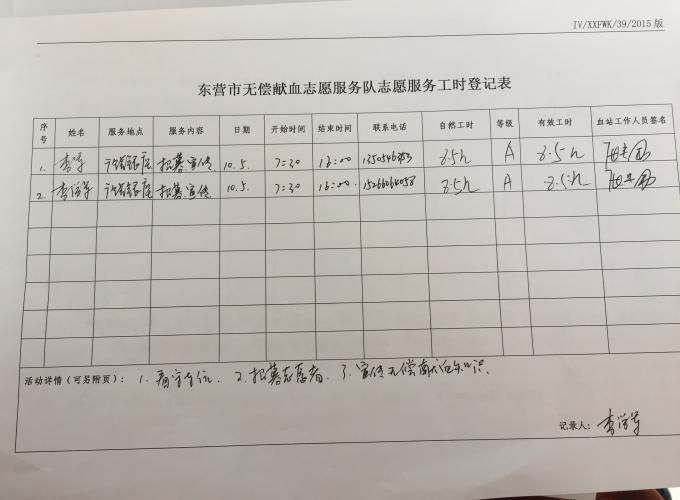 IV/XXFWK/39/2015 版
东营市无偿献血志愿服务队志愿服务工时登记表
序号 姓名 服务地点 服务内容 日期 开始时间 结束时间 联系电话 自然工时 等级 有效工时 血站工作人员签名
1. 招募宣传 10.5. 7:30 16:00 8.5h A 8.5h
2. 招募宣传. 10.5. 7:30 16:00. 15266064058 8.5h A 8.5h
活动详情（可另附页）： 1. 看守车位. 2. 招募志愿者. 3. 宣传无偿献血知识.
记录人：